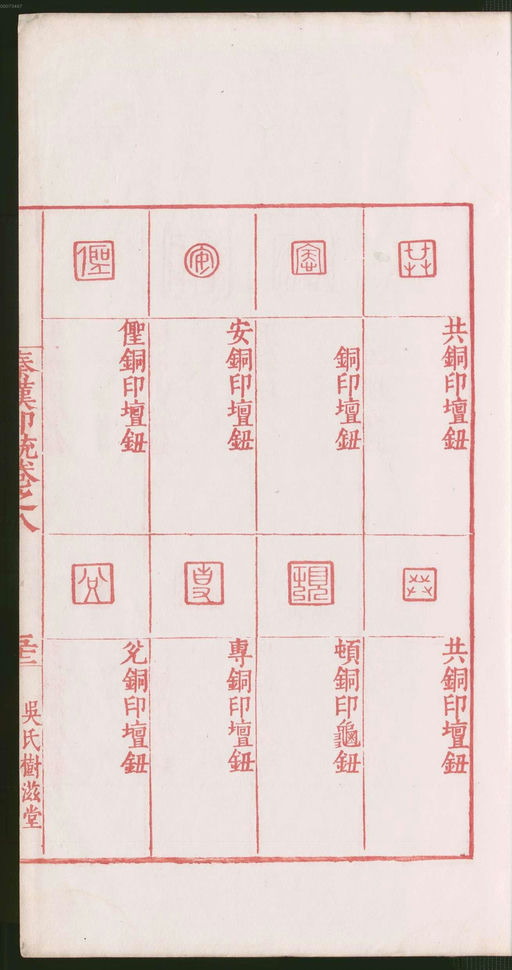 共銅印壇鈕
銅印壇鈕
安銅印壇鈕
俚銅印壇鈕
共銅印壇鈕
頓銅印龜鈕
專銅印壇鈕
兊銅印壇鈕
秦漢印統卷之八
吳氏樹滋堂
00073447